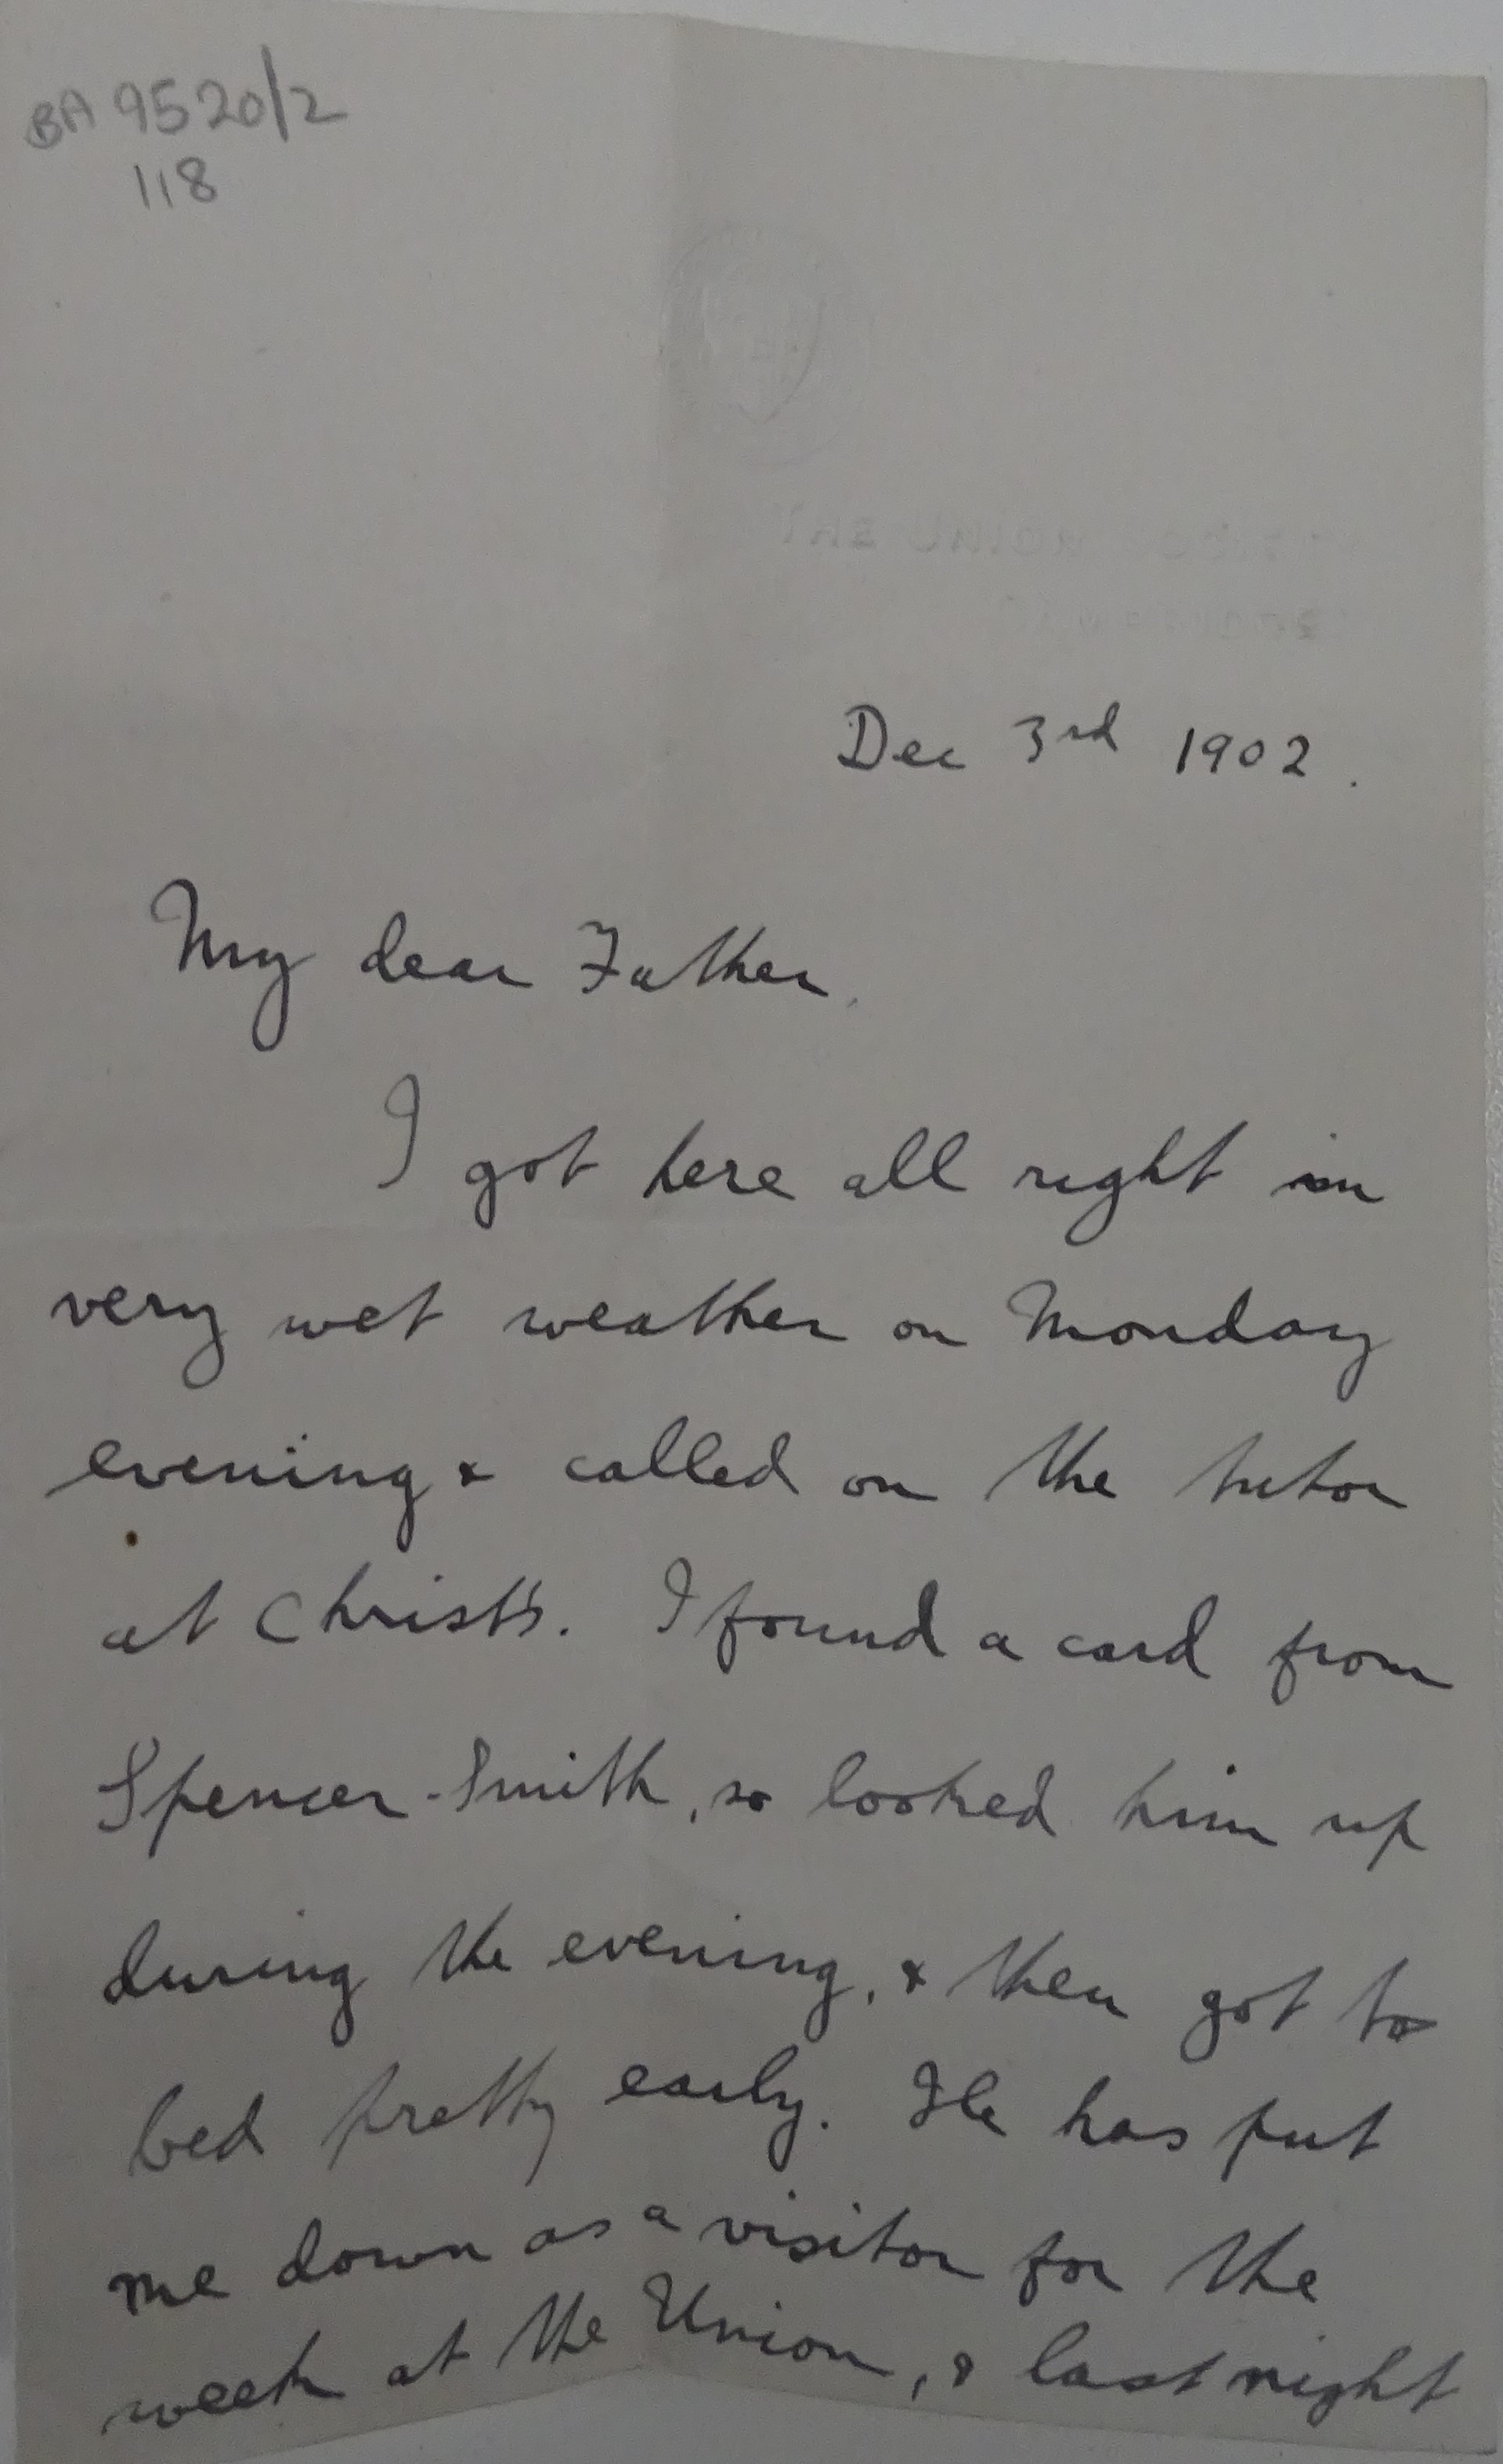 BA 9520/2
118
THE UNION SOCIETY
CAMBRIDGE
Dec 3rd 1902.
My dear Father,
I got here all right in
very wet weather on Monday
evening & called on the tutor
at Christ's. I found a card from
Spencer-Smith, so looked him up
during the evening, & then got to
bed pretty early. He has put
me down as a visitor for the
week at the Union, & last night